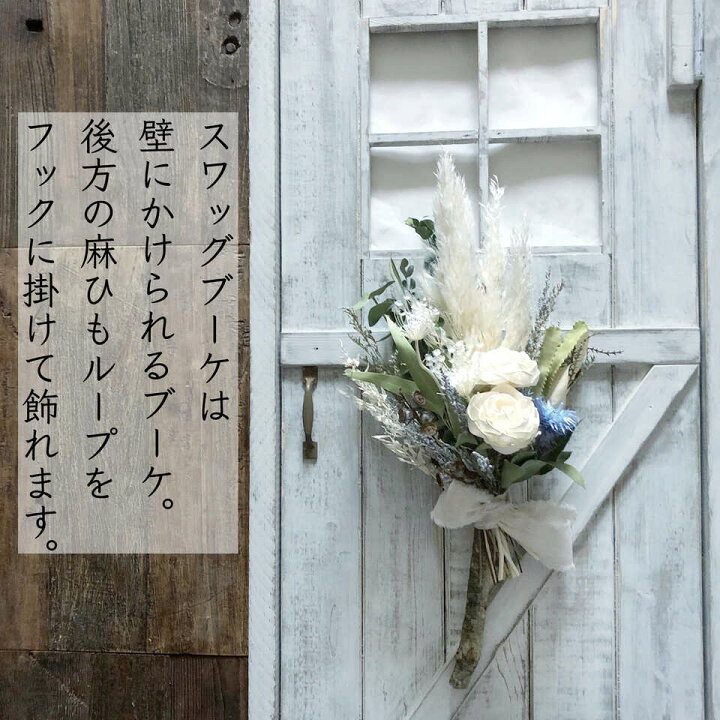 スワッグブーケは
壁にかけられるブーケ。
後方の麻ひもループを
フックに掛けて飾れます。